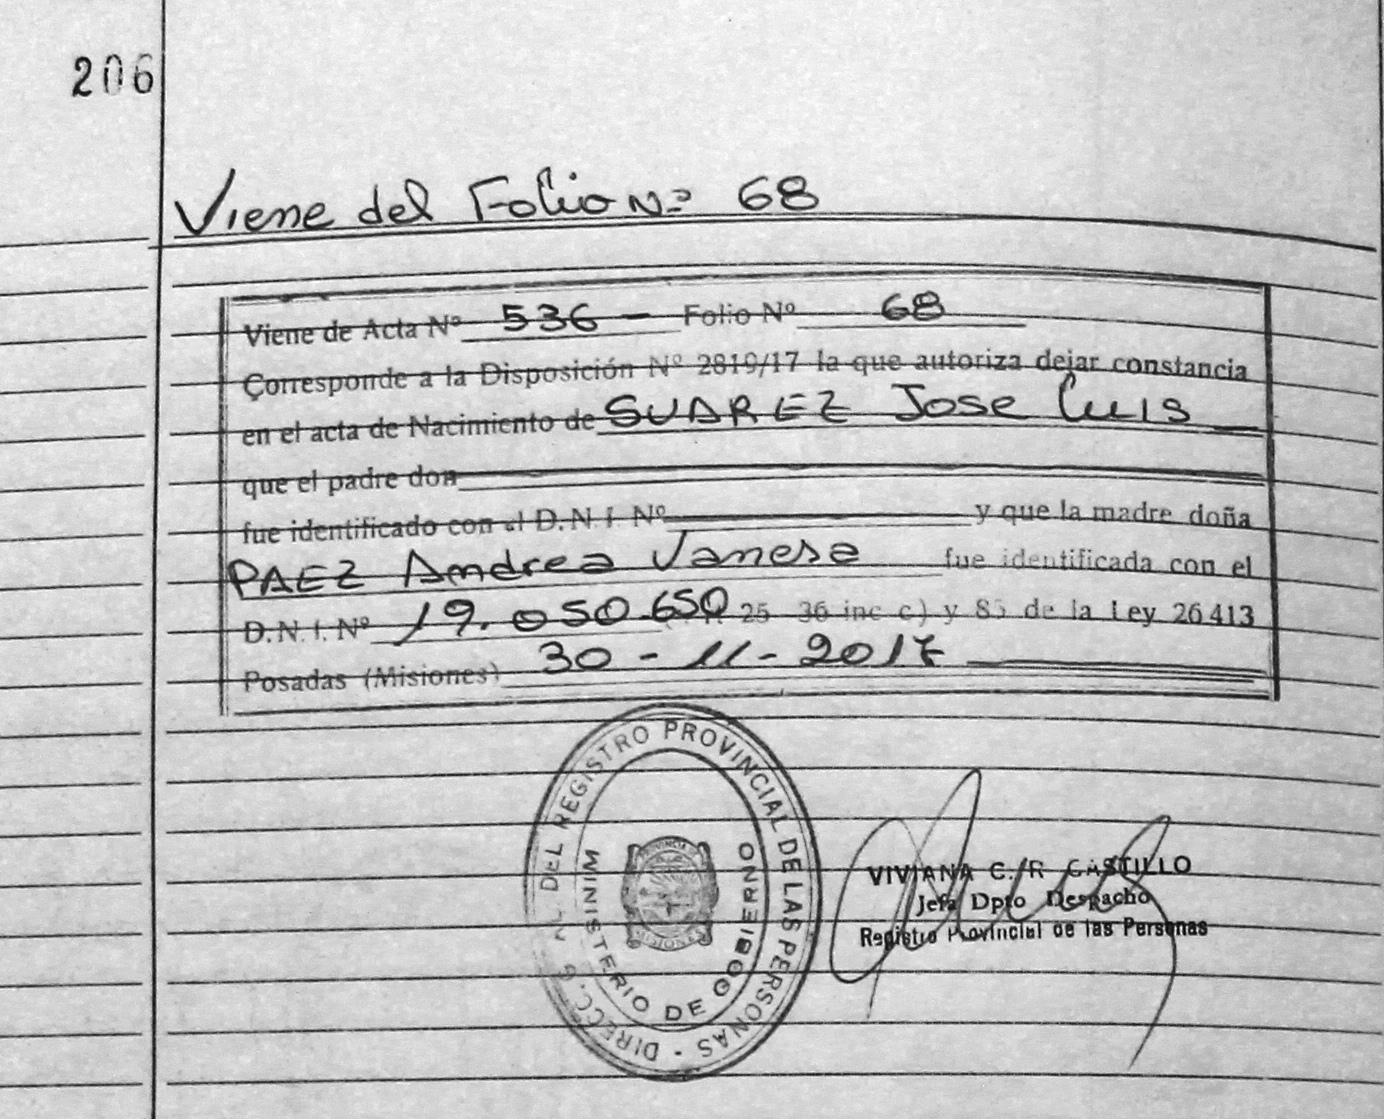 206
Viene del Folio Nº 68
Viene de Acta Nº 536 - Folio Nº 68
Corresponde a la Disposición Nº 2819/17 la que autoriza dejar constancia
en el acta de Nacimiento de SUAREZ Jose Luis
que el padre don
fue identificado con el D.N.I. Nº y que la madre doña
PAEZ Andrea Vanesa fue identificada con el
D.N.I. Nº 19.050.650 25 36 inc c) y 85 de la Ley 26413
Posadas (Misiones) 30-11-2017
DIRECC. G AL. DEL REGISTRO PROVINCIAL DE LAS PERSONAS -
MINISTERIO DE GOBIERNO
PROVINCIA
MISIONES
VIVIANA C. R CASTILLO
Jefa Dpto Despacho
Registro Provincial de las Personas